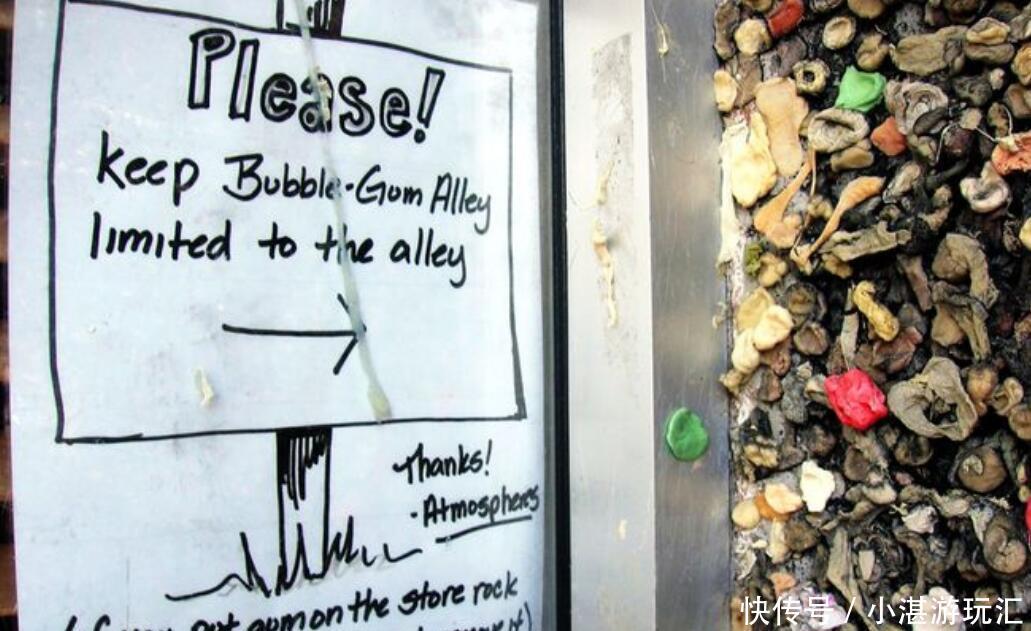 Please!
Keep Bubble-Gum Alley
limited to the alley
Thanks!
-Atmospheres
gum on the store rock
快传号 / 小湛游玩汇